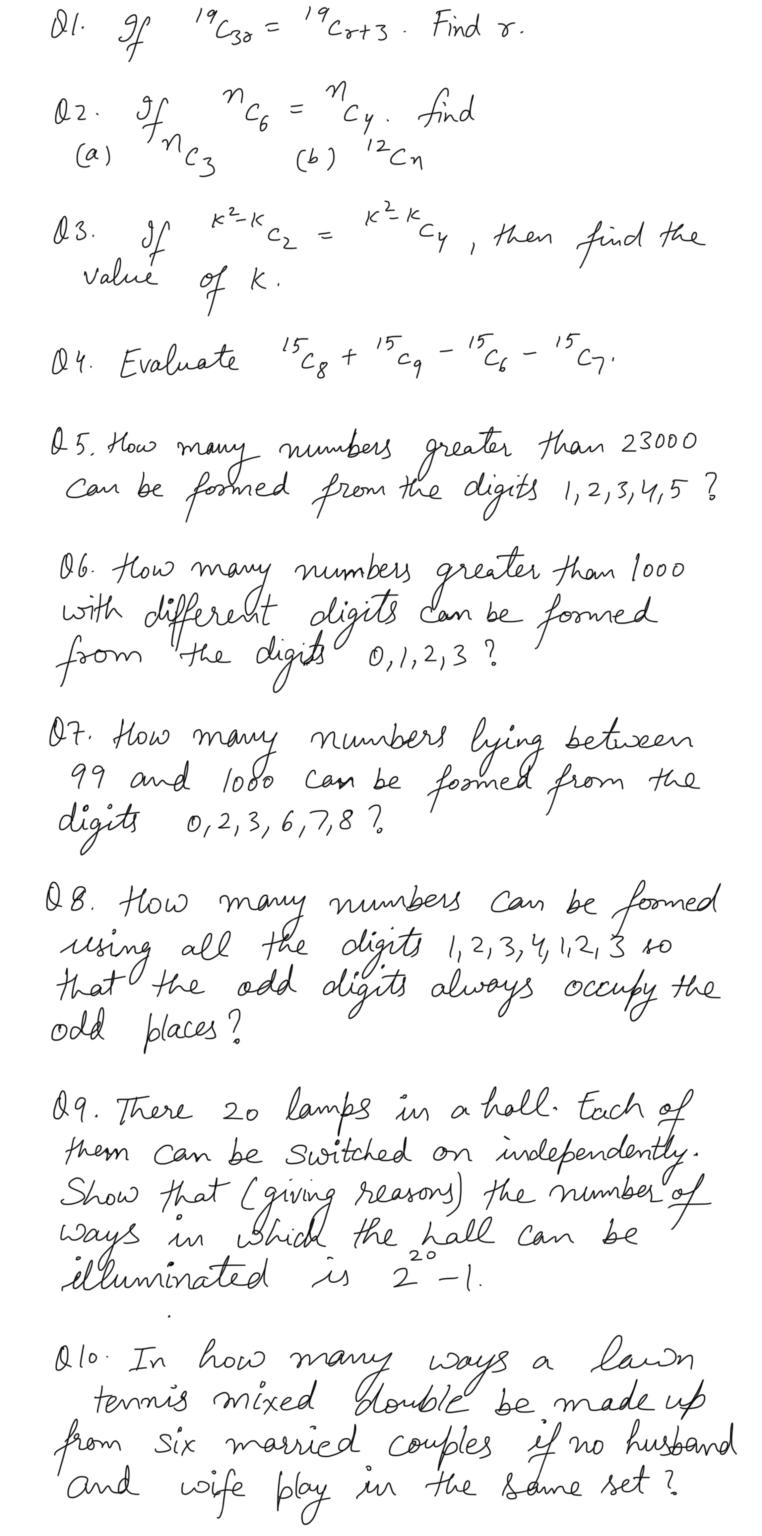 Q1. If ¹⁹C₃ᵣ = ¹⁹Cᵣ₊₃. Find r.
Q2. If ⁿC₆ = ⁿC₄. find
(a) ⁿC₃ (b) ¹²Cₙ
Q3. If ᴷ²⁻ᴷC₂ = ᴷ²⁻ᴷC₄, then find the
value of K.
Q4. Evaluate ¹⁵C₈ + ¹⁵C₉ - ¹⁵C₆ - ¹⁵C₇.
Q5. How many numbers greater than 23000
can be formed from the digits 1,2,3,4,5 ?
Q6. How many numbers greater than 1000
with different digits can be formed
from the digits 0,1,2,3 ?
Q7. How many numbers lying between
99 and 1000 can be formed from the
digits 0,2,3,6,7,8 ?
Q8. How many numbers can be formed
using all the digits 1,2,3,4,1,2,3 so
that the odd digits always occupy the
odd places?
Q9. There 20 lamps in a hall. Each of
them can be switched on independently.
Show that (giving reasons) the number of
ways in which the hall can be
illuminated is 2²⁰-1.
Q10. In how many ways a lawn
tennis mixed double be made up
from six married couples if no husband
and wife play in the same set ?